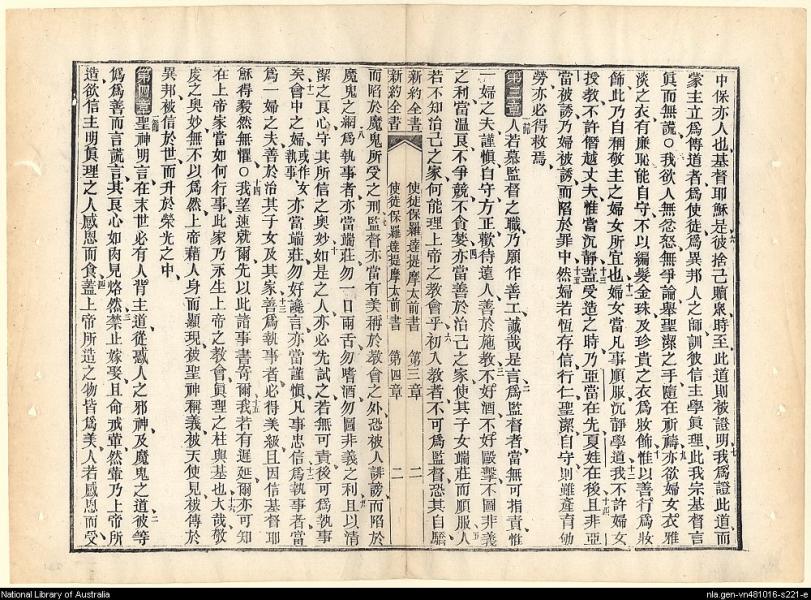 中保亦人也基督耶穌是彼捨己贖衆時至此道則被證明我爲證此道而
蒙主立爲傳道者爲使徒爲異邦人之師訓彼信主學眞理此我宗基督言
眞而無謊○我欲人無忿怒無爭論舉聖潔之手隨在祈禱亦欲婦女衣雅
淡之衣有廉恥能自守不以編髮金珠及珍貴之衣爲妝飾惟以善行爲妝
飾此乃自稱敬主之婦女所宜也婦女當凡事順服沉靜學道我不許婦女
授教不許僭越丈夫惟當沉靜蓋受造之時乃亞當在先夏娃在後且非亞
當被誘乃婦被誘而陷於罪中然婦若恆存信行仁聖潔自守則雖產育劬
勞亦必得救焉
第三章 一節 人若慕監督之職乃願作善工誠哉是言爲監督者當無可指責惟
一婦之夫謹愼自守方正歡待遠人善於施教不好酒不好毆擊不圖非義
之利當溫良不爭競不貪婪亦當善於治己之家使其子女端莊而順服人
若不知治己之家何能理上帝之教會乎初入教者不可爲監督恐其自驕
新約全書 使徒保羅達提摩太前書 第三章 二
新約全書 使徒保羅達提摩太前書 第四章 二
而陷於魔鬼所受之刑監督亦當有美稱於教會之外恐被人誹謗而陷於
魔鬼之網爲執事者亦當端莊勿一口兩舌勿嗜酒勿圖非義之利且以清
潔之良心守其所信之奧妙如是之人亦必先試之若無可責後可爲執事
矣會中之婦或作女執事亦當端莊勿好讒言亦當謹愼凡事忠信爲執事者當
爲一婦之夫善於治其子女及其家善爲執事者必得美級且因信基督耶
穌得毅然無懼○我望速就爾先以此諸事書寄爾我若有遲延爾亦可知
在上帝家當如何行事此家乃永生上帝之教會眞理之柱與基也大哉敬
虔之奧妙無不以爲然上帝藉人身而顯現被聖神稱義被天使見被傳於
異邦被信於世而升於榮光之中
第四章 一節 聖神明言在末世必有人背主道從惑人之邪神及魔鬼之道彼等
僞爲善而言謊言其良心如肉見烙然禁止嫁娶且命戒葷然葷乃上帝所
造欲信主明眞理之人感恩而食蓋上帝所造之物皆爲美人若感恩而受
National Library of Australia
nla.gen-vn481016-s221-e